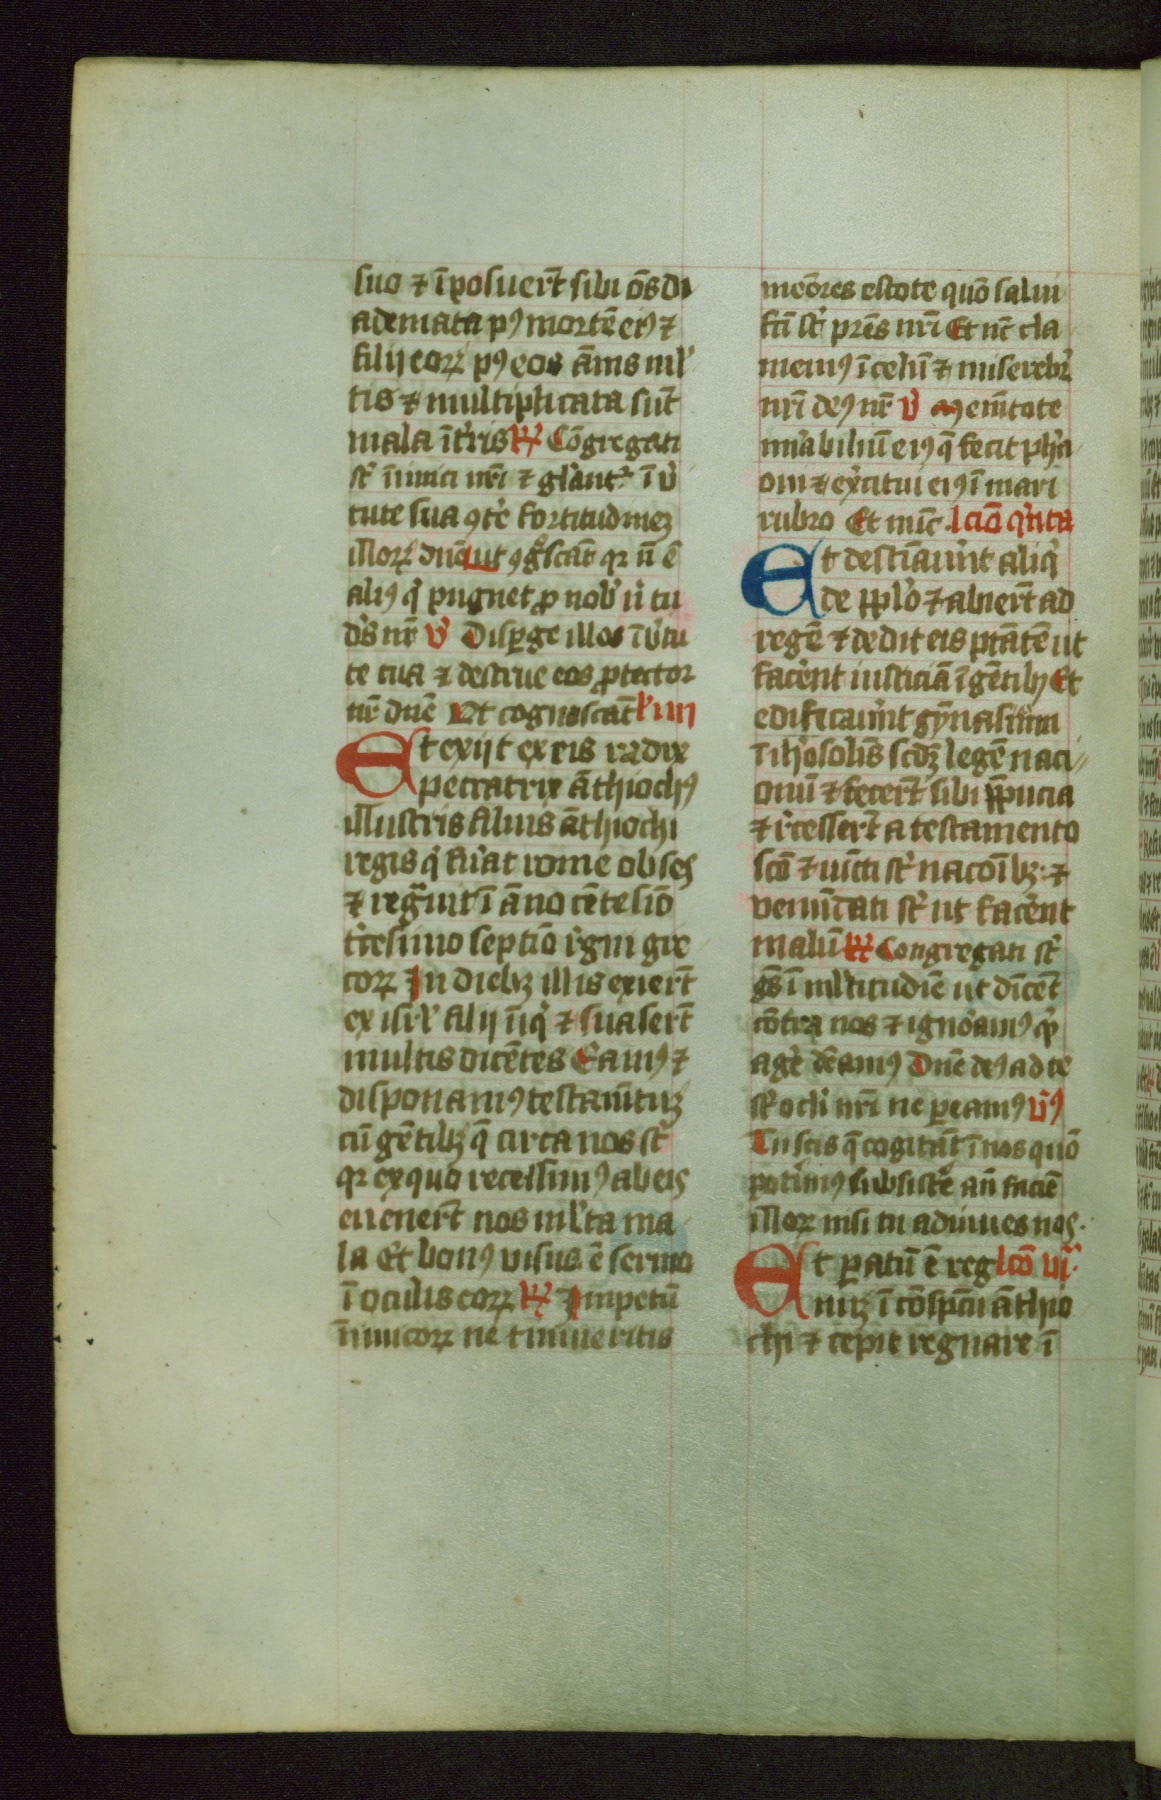 suo ⁊ īposuer̄t sibi ōs di
ademata pꝰ mortē eiꝰ ⁊
filij eoꝝ pꝰ eos ānis ml'
tis ⁊ multiplicata sūt
mala ī t'ris ℟ Cōgregati
st̄ inimici nr̄i ⁊ gl'ant' ī v'
tute sua ꝯt'e fortitudinez
illoꝝ dn̄e ut ꝯgscāt qꝛ n̄ ē
aliꝰ q' pugnet ꝓ nob' n' tu
ds̄ nr̄ ℣ Disꝑge illos ī v'tu
te tua ⁊ destrue eos ꝓtector
nr̄ dn̄e Ut cognoscāt l' iiij
Et exijt ex eis radix
peccatrix āthiochꝰ
illustris filius āthiochi
regis q' fu'at rome obses
⁊ regnuit ī āno cētesīo
t'cesimo septīo r'gni gre
coꝝ In diebꝫ illis exier̄t
ex isrl' filij inq' ⁊ suaser̄t
multis dicētes Eamꝰ ⁊
disponamꝰ testam̄tuꝫ
cū gētibꝫ q̄ circa nos st̄
qꝛ ex quo recessimꝰ ab eis
euener̄t nos ml'ta ma
la Et bonꝰ visus ē sermo
ī oculis eoꝝ ℟ Impetū
inimicoꝝ ne timueritis
meōres estote quō salui
fc̄i st̄ pr̄es nr̄i Et nc̄ cla
memꝰ ī celū ⁊ miserebr̄
nr̄i deꝰ nr̄ ℣ Mem̄tote
mirabiliū eiꝰ q̄ fecit pha
oni ⁊ ex'citui eiꝰ ī mari
rubro Et nunc lciō q'nta
Et destīau'nt aliq'
de pplo ⁊ abier̄t ad
regē ⁊ dedit eis ptātē ut
fac'ent iusticiā gētibꝫ Et
edificau'nt gȳnasium
ī ih'osolīs scdꝫ legē naci
onū ⁊ fecer̄t sibi p̄pucia
⁊ r'cesser̄t a testamento
scō ⁊ iūcti st̄ nacōibꝫ ⁊
venūdati st̄ ut fac'ent
malū ℟ Congregati st̄
gēs ī ml'titudīe ut dicēt
cōtra nos ⁊ ignōamꝰ qd
ag'e debamꝰ Dn̄e deꝰ ad te
st̄ ocl'i nr̄i ne ꝑeamꝰ v'ꝰ
Tu scis q̄ cogitāt ī nos quō
pot'imꝰ subsist'e an̄ faciē
illoꝝ nisi tu adiuues nos
Et ꝑatū ē reg lcō vi
nuꝫ ī cōspc̄u āthio
chi ⁊ cepit regnare ī